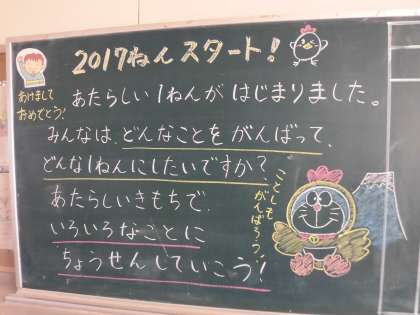 2017ねんスタート!
あけまして
おめでとう!
あたらしい1ねんがはじまりました。
みんなは、どんなことをがんばって、
どんな1ねんにしたいですか?
あたらしいきもちで、
いろいろなことに
ちょうせんしていこう!
ことしも
がんばろう!